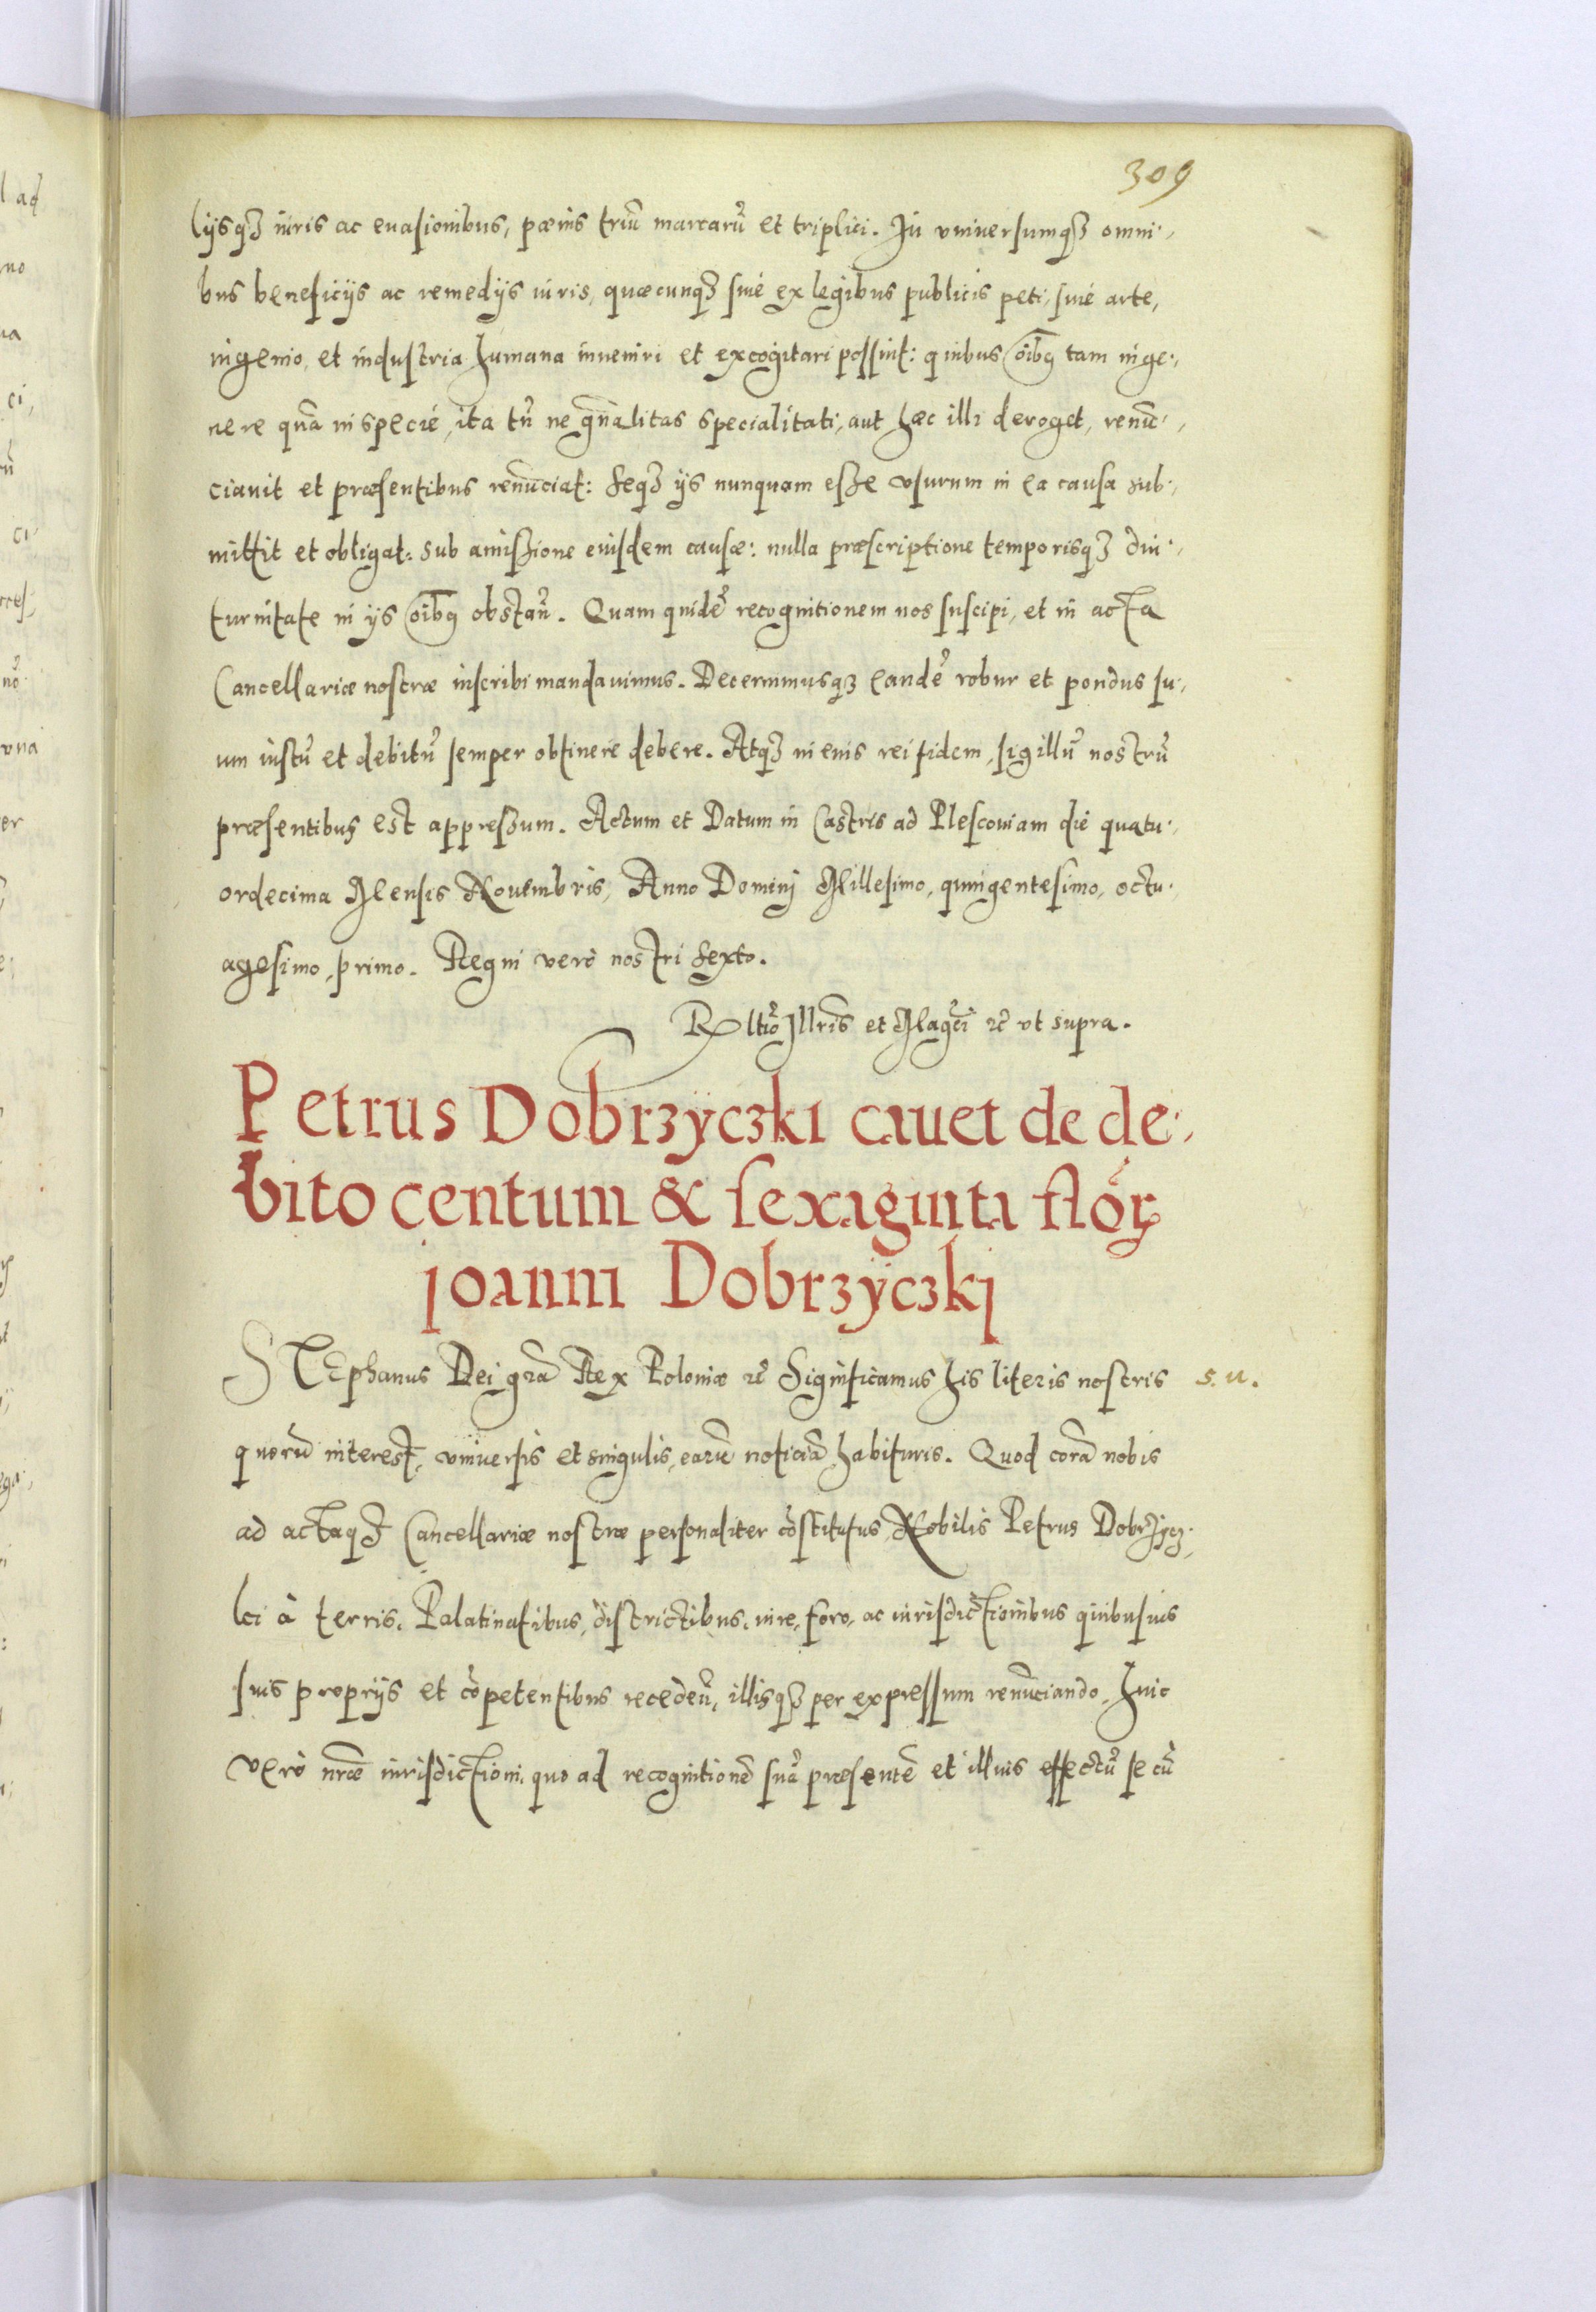 309
lijsq3 iuris ac euasionibus, pœnis triũ marcarũ et triplici. In vniuersumq3 omni-,
bus beneficijs ac remedijs iuris, quæcunq3 siué ex legibus publicis peti, siué arte,
ingenio, et industria humana inueniri et excogitari possint: quibus oĩbq tam in ge-,
nere quã in specié, ita tñ ne gñalitas specialitati, aut hæc illi deroget, renũ-,
ciauit et præsentibus renũciat: seq3 ijs nunquam esse vsurum in ea causa sub-,
mittit et obligat: sub amissione eiusdem causæ: nulla præscriptione temporisq3 diu-,
turnitate in ijs oĩbq obstañ. Quam quidẽ recognitionem nos suscipi, et in acta
Cancellariæ nostræ inscribi mandauimus. Decernimusq3 eandẽ robur et pondus su-,
um iustũ et debitũ semper obtinere debere. Atq3 in eius rei fidem, sigillũ nostrũ
præsentibus est appressum. Actum et Datum in Castris ad Plescouiam die quatu-,
ordecima Mensis Nouembris, Anno Dominj Millesimo, quingentesimo, octu-,
agesimo, primo. Regni verò nostri sexto.
Rltio Illris et Magci &c vt supra.
Petrus Dobrzyczki cauet de de-,
bito centum & sexaginta flor
joanni Dobrzyczkj
STEphanus Dei gra Rex Poloniæ &c Significamus his literis nostris s. u.
quorũ interest, vniuersis et singulis, earũ noticiã habituris. Quod corã nobis
ad actaq3 Cancellariæ nostræ personaliter cõstitutus, Nobilis Petrus Dobrzycz-,
ki à terris, Palatinatibus, districtibus, iure, foro, ac iurisdictionibus quibusuis
suis proprijs et cõpetentibus recedeñ, illisq3 per expressum renũciando, huic
verò nræ iurisdictioni, quo ad recognitionẽ suã præsentẽ et illius effectũ se cũ